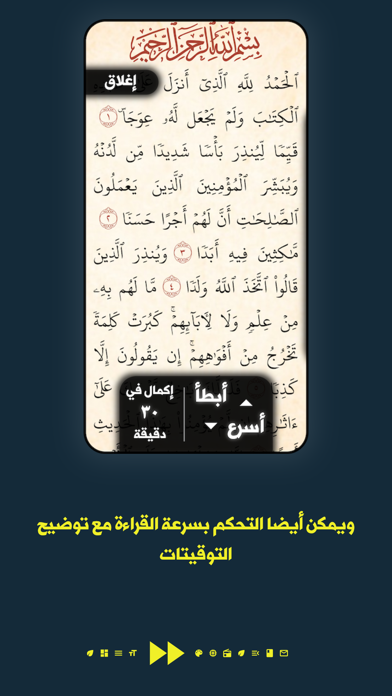 بِسْمِ ٱللَّهِ ٱلرَّحْمَٰنِ ٱلرَّحِيمِ
ٱلْحَمْدُ لِلَّهِ ٱلَّذِىٓ أَنزَلَ
إغلاق
ٱلْكِتَٰبَ وَلَمْ يَجْعَل لَّهُۥ عِوَجَاۜ ١
قَيِّمًا لِّيُنذِرَ بَأْسًا شَدِيدًا مِّن لَّدُنْهُ
وَيُبَشِّرَ ٱلْمُؤْمِنِينَ ٱلَّذِينَ يَعْمَلُونَ
ٱلصَّٰلِحَٰتِ أَنَّ لَهُمْ أَجْرًا حَسَنًا ٢
مَّٰكِثِينَ فِيهِ أَبَدًا ٣ وَيُنذِرَ ٱلَّذِينَ
قَالُوا۟ ٱتَّخَذَ ٱللَّهُ وَلَدًا ٤ مَّا لَهُم بِهِۦ
مِنْ عِلْمٍ وَلَا لِءَابَآئِهِمْ ۚ كَبُرَتْ كَلِمَةً
تَخْرُجُ مِنْ أَفْوَٰهِهِمْ ۚ إِن يَقُولُونَ إِلَّا
كَذِبًا
عَلَىٰٓ
ءَاثَٰرِهِمْ
ٱلْحَدِيثِ
أبطأ
أسرع
إكمال في
٣٠
دقيقة
ويمكن أيضا التحكم بسرعة القراءة مع توضيح
التوقيتات